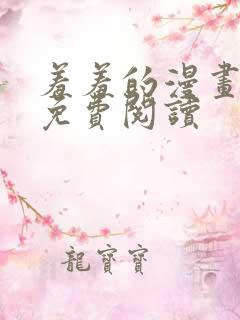 羞羞的漫畫
免費閱讀
龍寶寶